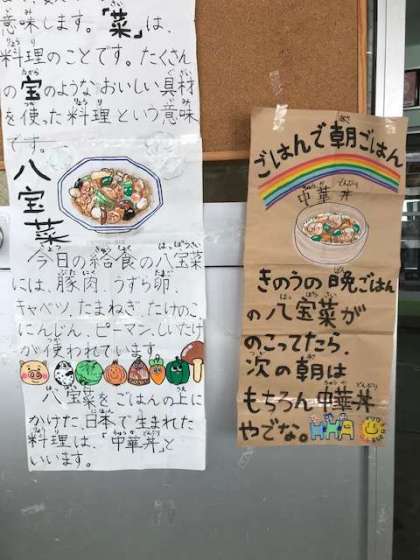 意味します。「菜」は、
料理のことです。たくさん
の宝のようなおいしい具材
を使った料理という意味
です。
八宝菜
今日の給食の八宝菜
には、豚肉、うずら卵、
キャベツ、たまねぎ、たけのこ、
にんじん、ピーマン、しいたけ
が使われています。
八宝菜をごはんの上に
かけた、日本で生まれた
料理は、「中華丼」と
いいます。
ごはんで朝ごはん
中華丼
きのうの晩ごはん
の八宝菜が
のこってたら、
次の朝は
もちろん中華丼
やでな。